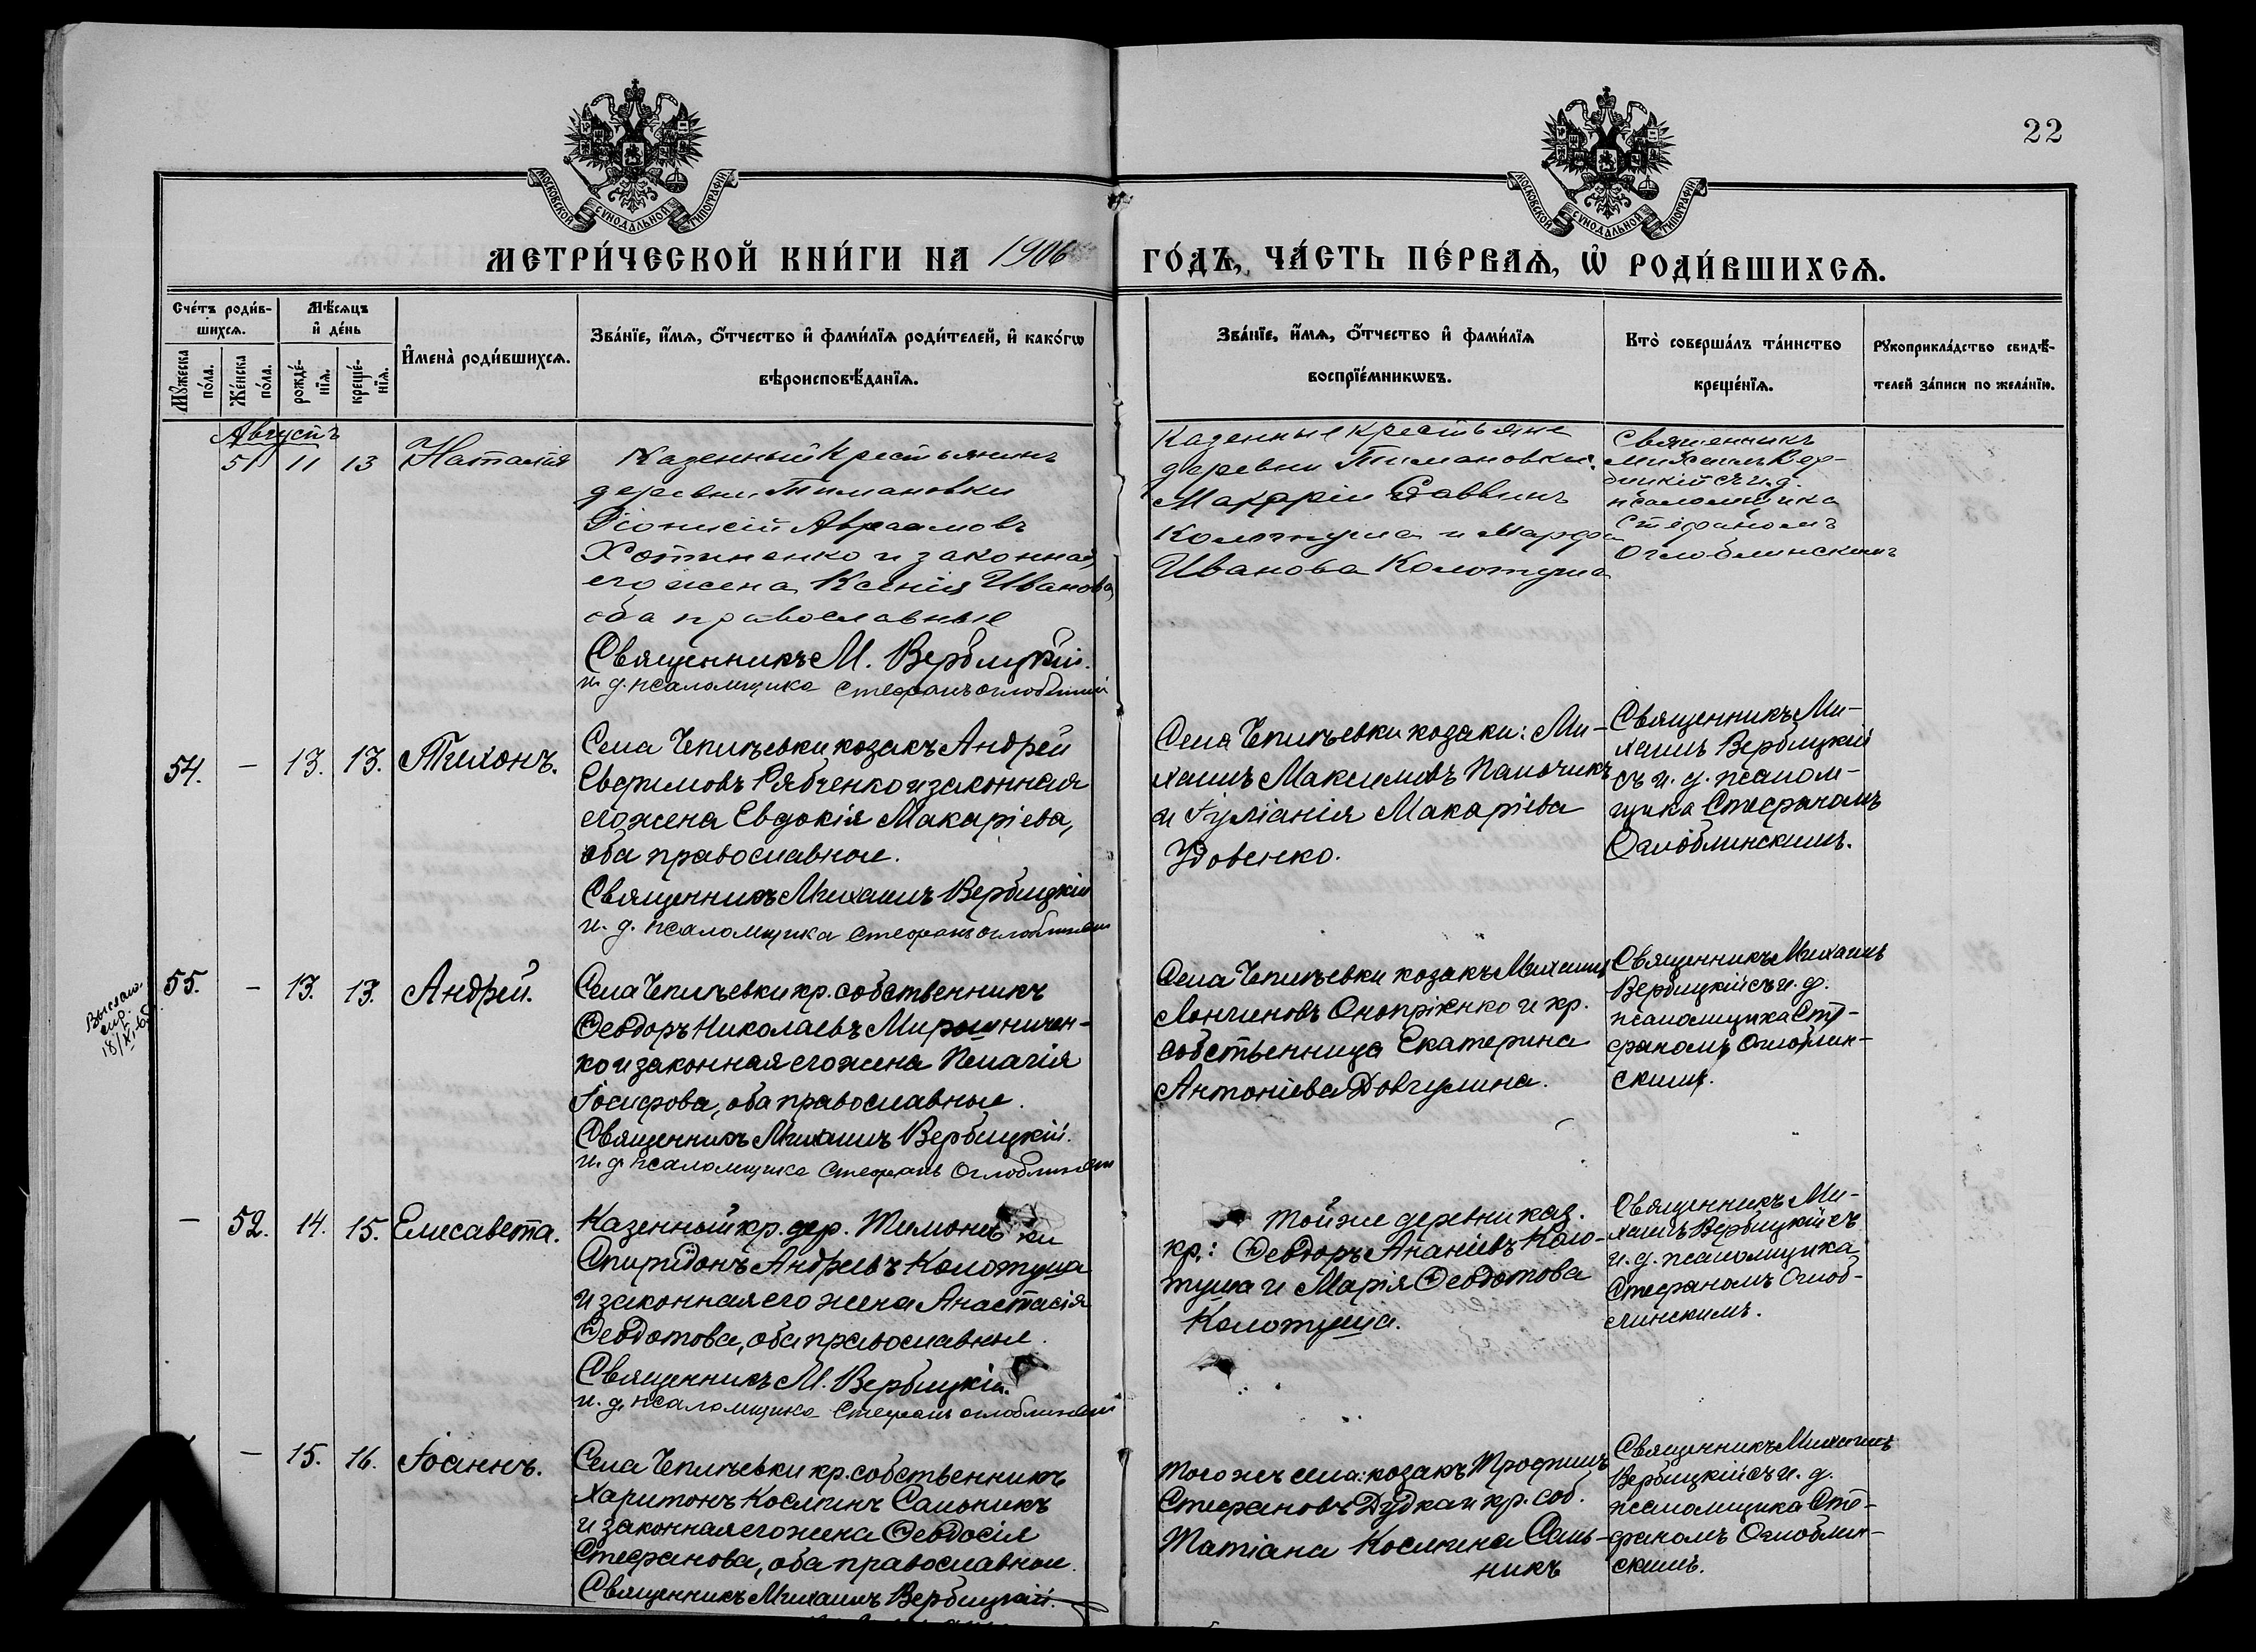 22
МОСКОВСКОЙ СѴНОДАЛЬНОЙ ТИПОГРАФІИ
МОСКОВСКОЙ СѴНОДАЛЬНОЙ ТИПОГРАФІИ
МЕТРИ́ЧЕСКОЙ КНИ́ГИ НА 1906 ГО́ДЪ, ЧА́СТЬ ПЕ́РВАѦ, Ѡ҆ РОДИ́ВШИХСѦ.
Сче́тъ роди́в-
шихсѧ.
Мꙋ́жеска по́ла.
Же́нска по́ла.
Мѣ́сѧцъ
и҆ де́нь
рожде́-
нїѧ.
креще́-
нїѧ.
И҆мена̀ роди́вшихсѧ.
Зва́нїе, и҆́мѧ, ѻ҆́тчество и҆ фами́лїѧ роди́телей, и҆ како́гѡ
вѣроисповѣ́данїѧ.
Зва́нїе, и҆́мѧ, ѻ҆́тчество и҆ фами́лїѧ
воспрїе́мникѡвъ.
Кто̀ соверша́лъ та́инство
креще́нїѧ.
Рꙋкоприкла́дство свидѣ́-
телей за́писи по жела́нїю.
Августъ
51 11 13 Наталія
Казенный Крестьянинъ
деревни Тимановки
Діонисій Авраамовъ
Хотиненко и законная
его жена Ксенія Иванова,
оба православные
Священникъ М. Вербицкій.
и. д. псаломщика Стефанъ Оглоблинскій
Казенные крестьяне
деревни Тимановки:
Макарій Саввинъ
Колотуша и Марфа
Иванова Колотуша
Священникъ
Михаилъ Вер-
бицкій съ и. д.
псаломщика
Стефаномъ
Оглоблинскимъ
54. — 13. 13. Тихонъ.
Села Чепилѣевки козакъ Андрей
Евфимовъ Рябченко и законная
его жена Евдокія Макаріева,
оба православные.
Священникъ Михаилъ Вербицкій
и. д. псаломщика Стефанъ Оглоблинскій
Села Чепилѣевки козаки: Ми-
хаилъ Максимовъ Палочикъ
и Іуліанія Макаріева
Удовенко.
Священникъ Ми-
хаилъ Вербицкій
съ и. д. псалом-
щика Стефаномъ
Оглоблинскимъ.
55. — 13. 13. Андрей.
Села Чепилѣевки кр. собственникъ
Ѳеодоръ Николаевъ Мирошничен-
ко и законная его жена Пелагія
Іосифова, оба православные.
Священникъ Михаилъ Вербицкій.
и. д. псаломщика Стефанъ Оглоблинскій
Села Чепилѣевки козакъ Михаилъ
Лонгиновъ Онопріенко и кр.
собственница Екатерина
Антоніева Довгулина.
Священникъ Михаилъ
Вербицкій съ и. д.
псаломщика Сте-
фаномъ Оглоблин-
скимъ.
— 52. 14. 15. Елисавета.
Казенный кр. дер. Тимоновки
Спиридонъ Андреевъ Колотуша
и законная его жена Анастасія
Ѳеодотова, оба православные.
Священникъ М. Вербицкій.
и. д. псаломщика Стефанъ Оглоблинскій
Той же деревни каз.
кр.: Ѳеодоръ Ананіевъ Коло-
туша и Марія Ѳеодотова
Колотуша.
Священникъ Ми-
хаилъ Вербицкій съ
и. д. псаломщика
Стефаномъ Оглоб-
линскимъ.
— 15. 16. Іоаннъ.
Села Чепилѣевки кр. собственникъ
Харитонъ Косминъ Сальникъ
и законная его жена Ѳеодосія
Стефанова, оба православные.
Священникъ Михаилъ Вербицкій.
Того же села: козакъ Трофимъ
Стефановъ Дудка и кр. соб.
Татіана Космина Саль-
никъ
Священникъ Михаилъ
Вербицкій съ и. д.
псаломщика Сте-
фаномъ Оглоблин-
скимъ.